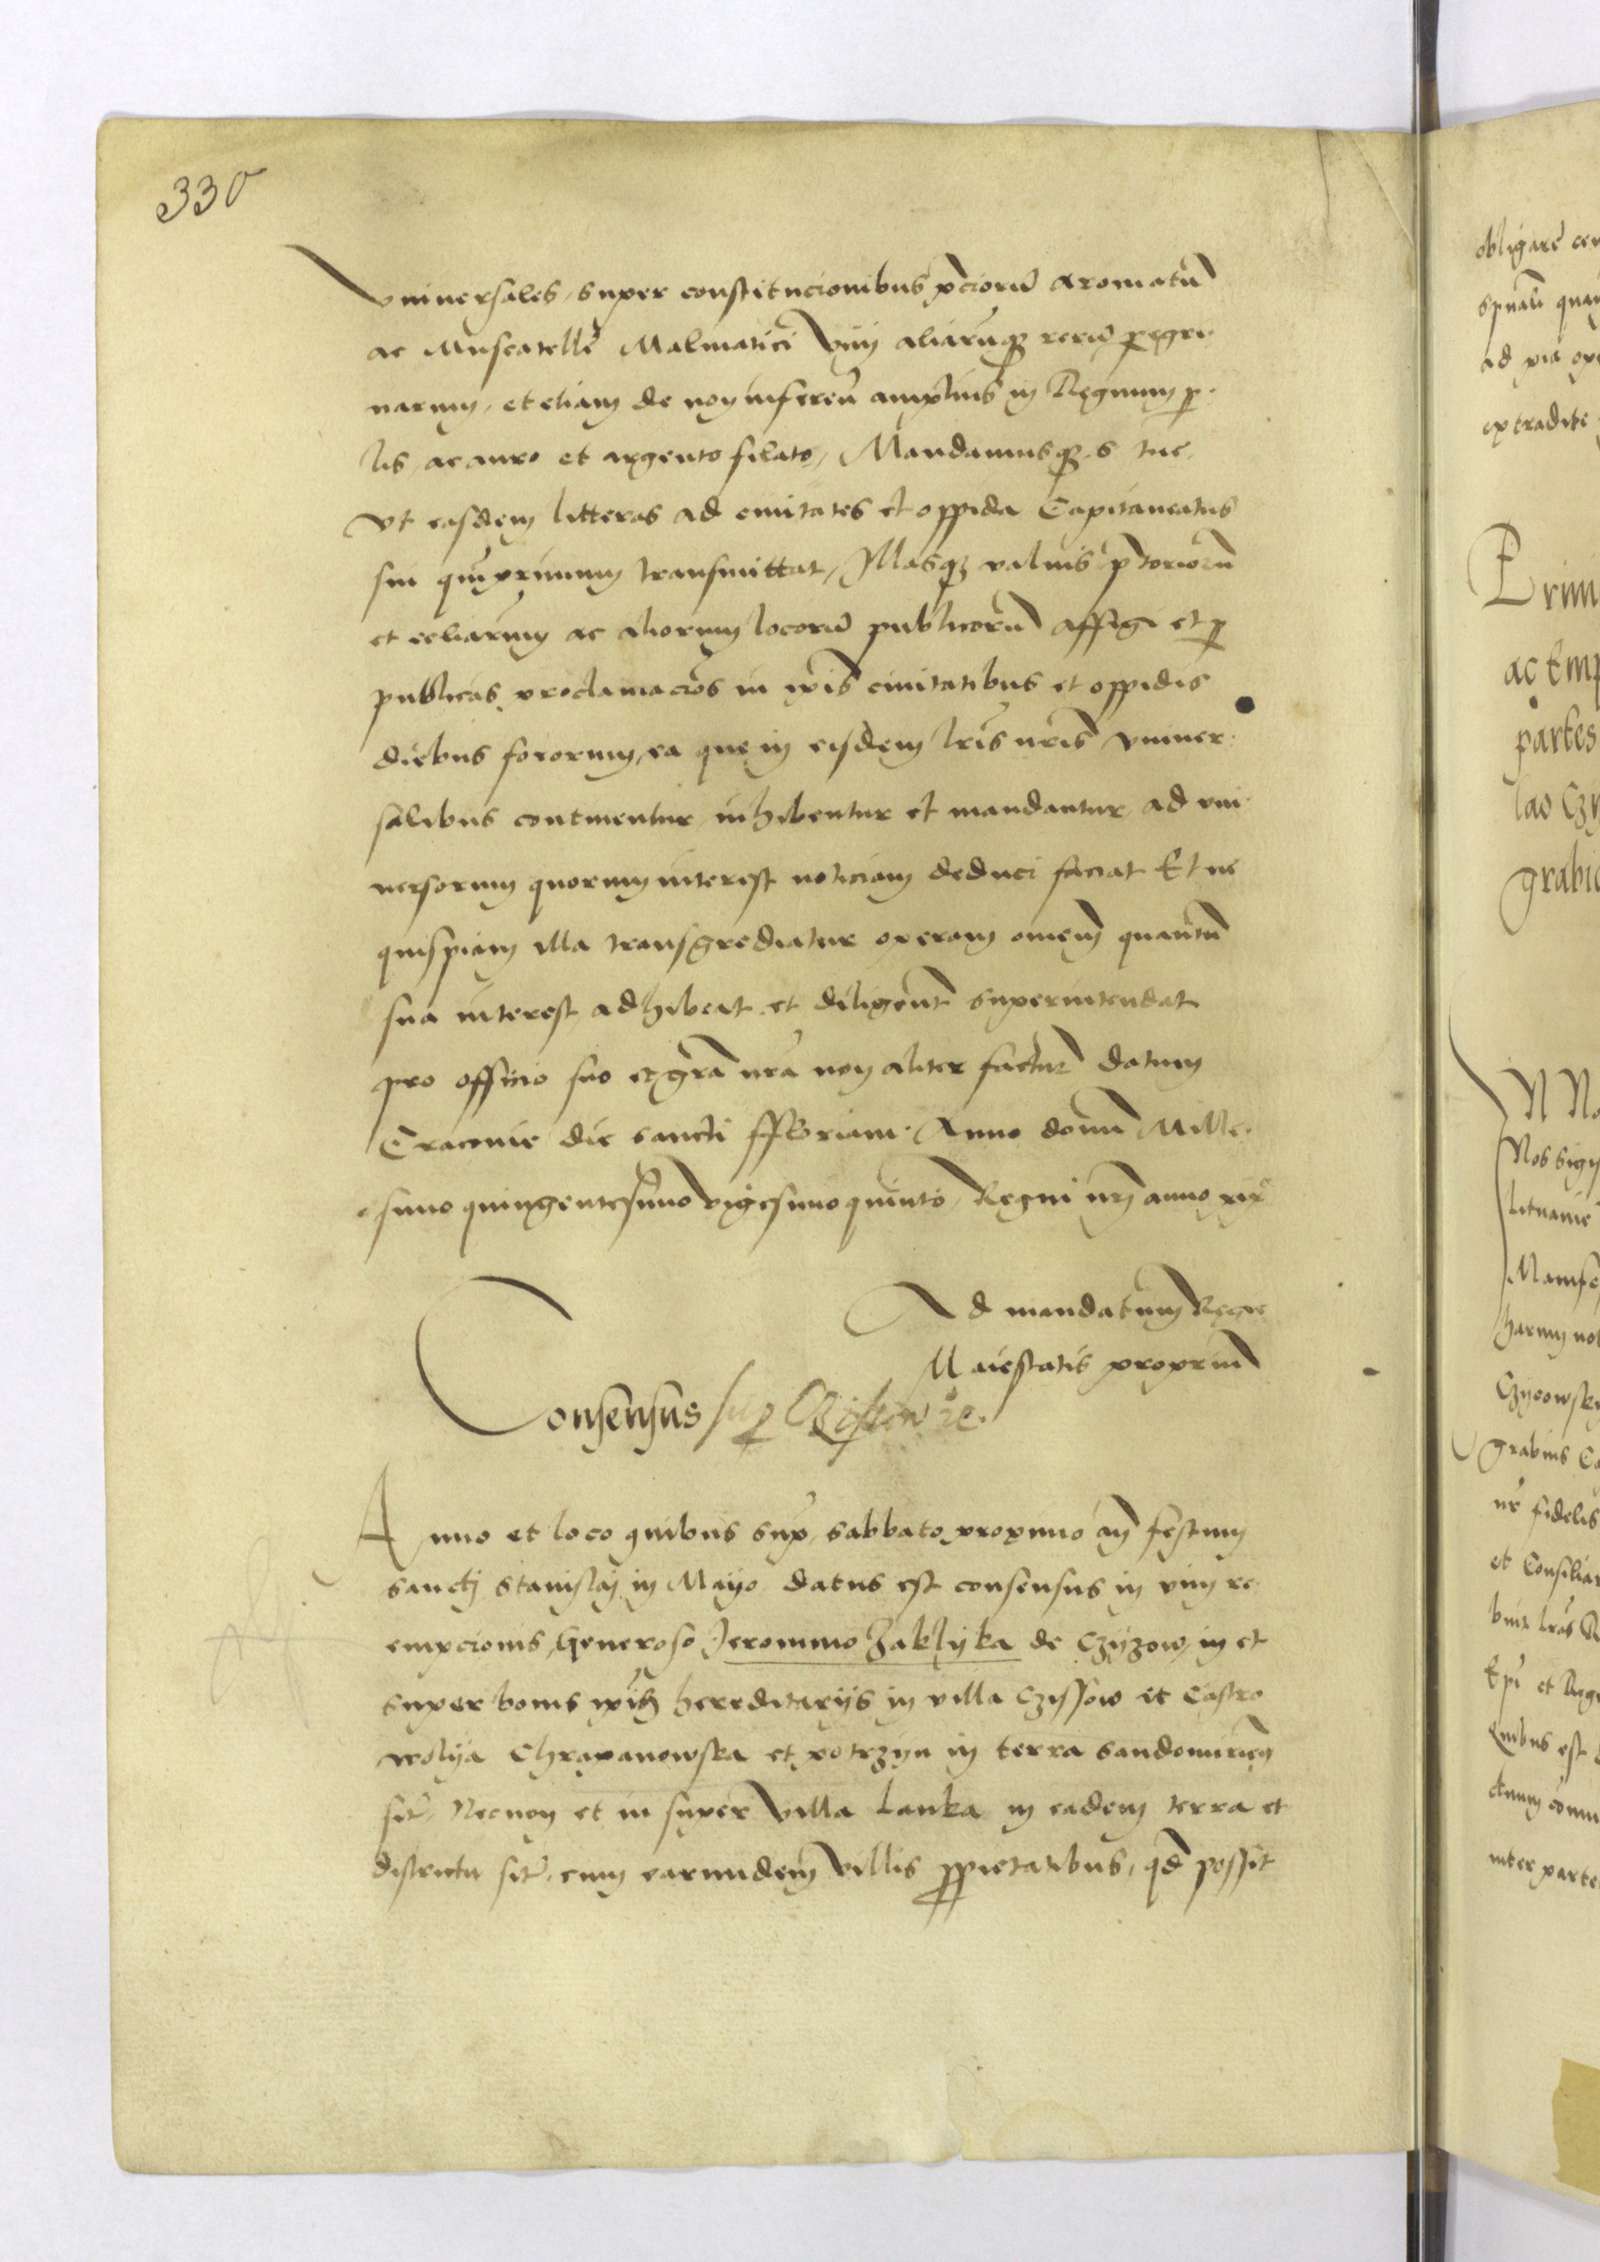 330
Universales, super constitucionibus pciorũ aromatũ
ac Muscatelle Malmatici vini aliarũqꝫ rerũ peregri
narum, et etiam de non inferen̄ amplius in Regnum p̱
lis, ac auro et argento filato, Mandamusqꝫ s tue
vt easdem litteras ad ciuitates et oppida Capitaneatus
sui quãprimum transmittat, Illasqꝫ valuis p̄toriorũ
et ecl̄iarum ac aliorum locorũ publicorũ affigi et p̱
publicas proclamacões in ip̄is ciuitatibus et oppidis
diebus fororum, ea que in eisdem lr̄is nr̄is vniuer
salibus continentur inhibentur et mandantur, ad vni
uersorum quorum interest noticiam deduci faciat Et ne
quispiam illa transgrediatur operam omnem quantũ
sua interest adhibeat et diligent̄ superintendat
pro officio suo et gr̄a nr̄a non aliter factur̄ datum
Cracouie die sancti ffloriani Anno domini Mille
simo quingentesimo vigesimo quinto, Regni nr̄i anno xix
Ad mandatum Regie
Maiestatis propriũ
Consensus sup̱ Czisow
Anno et loco quibus sup̄, sabbato proximo an̄ festum
sancti Stanislai in Mayo datus est consensus in vim re
empcionis, Generoso Jeronimo Zaklyka de Czyzow, in et
super bonis ip̄ius hereditariis in villa Czyssow et Castro
wolya Chrapanowska et potrzyn in terra sandomirien̄
sit̄, Necnon et in super villa Lanka in eadem terra et
districtu sit̄, cum earundem villis p̱prietatibus, qd̄ possit
obligare
ad pia
extradite
ac Emp
partes
grabi
Nos Sigis
Litvanie
Manife
harum
Czyzowsky
grabius
nr̄ fidelis
et Consiliar
Ep̄i et Reg
inter parte